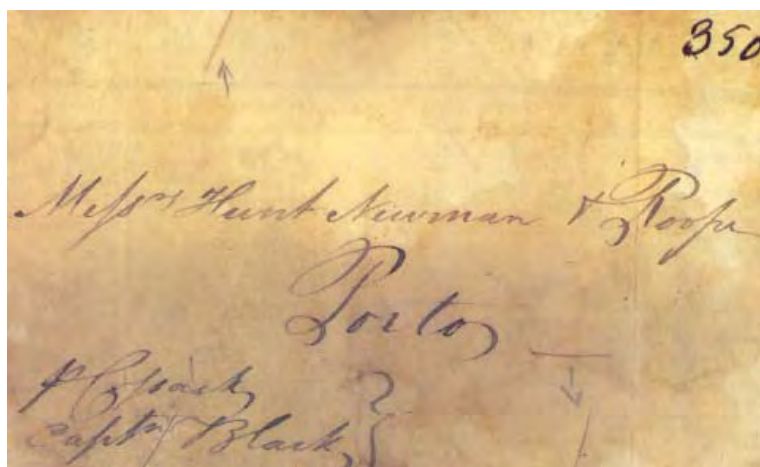 350
Messrs Hunt Newman & Roope
Porto
p Cossack
Captn Black